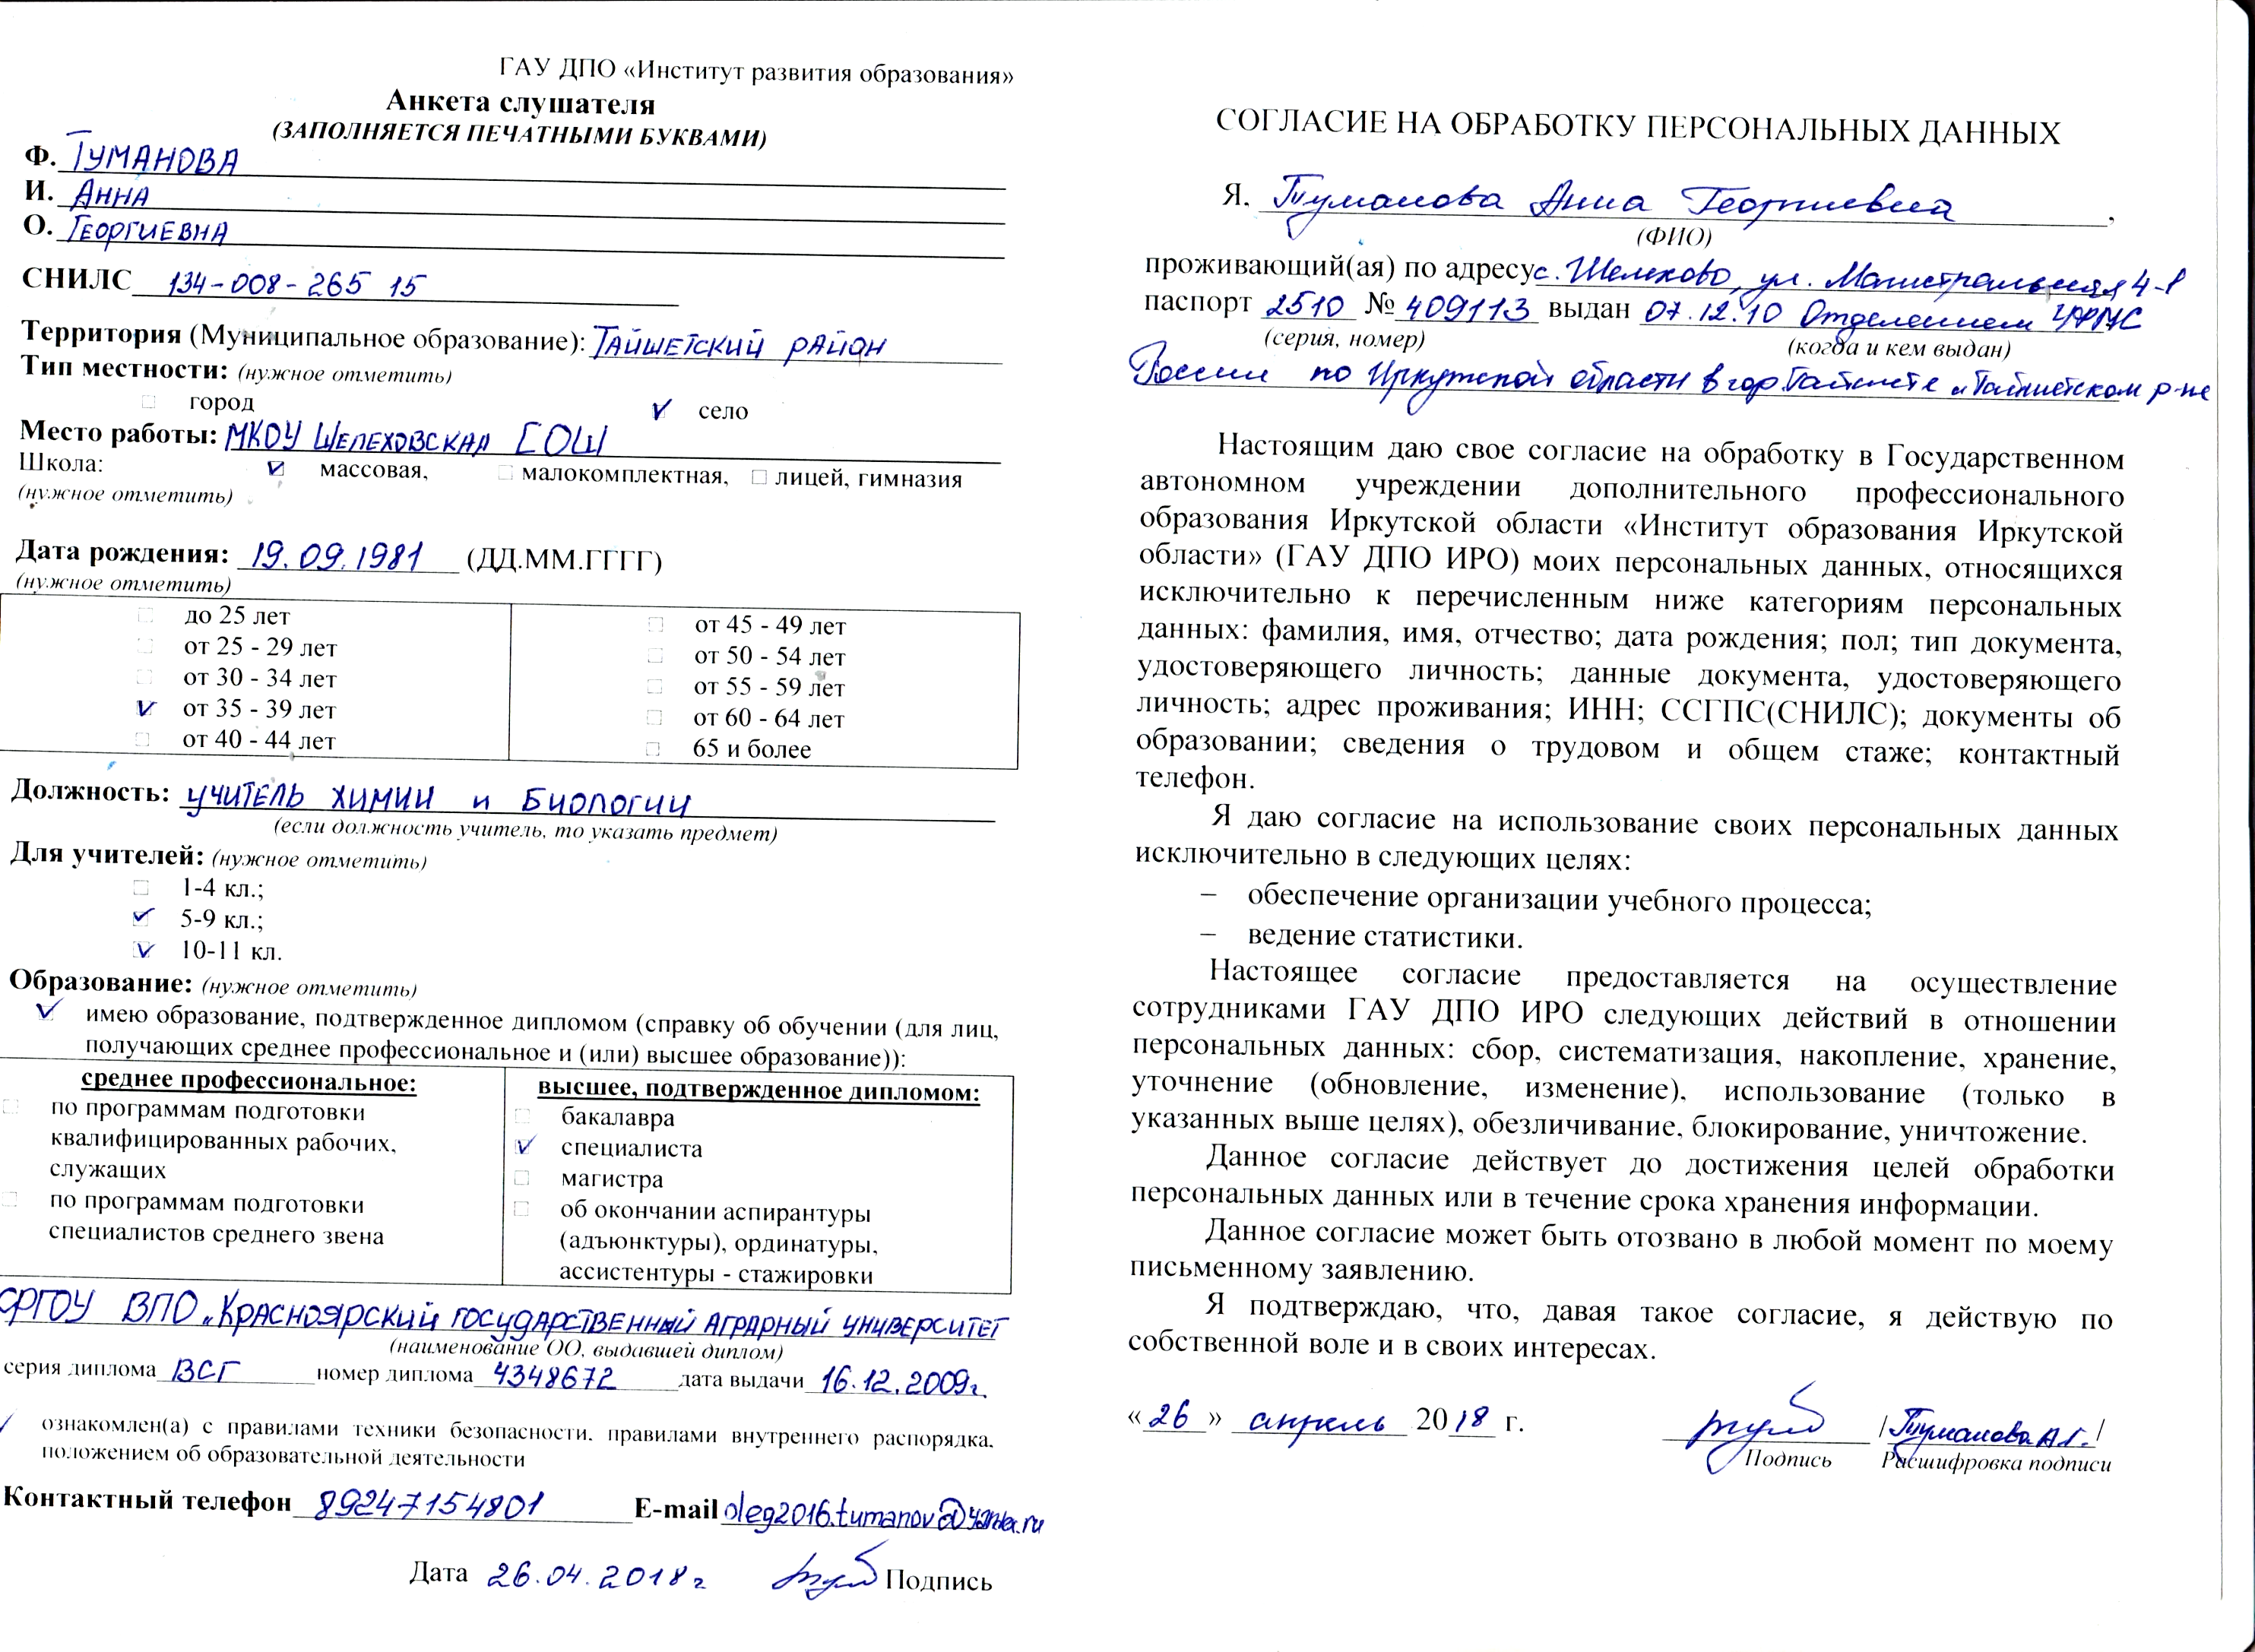 ГАУ ДПО «Институт развития образования»
Анкета слушателя
(ЗАПОЛНЯЕТСЯ ПЕЧАТНЫМИ БУКВАМИ)
Ф. ТУМАНОВА
И. АННА
О. ГЕОРГИЕВНА
СНИЛС 134-008-265 15
Территория (Муниципальное образование): ТАЙШЕТСКИЙ РАЙОН
Тип местности: (нужное отметить)
город село
Место работы: МКОУ ШЕЛЕХОВСКАЯ СОШ
Школа: массовая, малокомплектная, лицей, гимназия
(нужное отметить)
Дата рождения: 19.09.1981 (ДД.ММ.ГГГГ)
(нужное отметить)
до 25 лет
от 25 - 29 лет
от 30 - 34 лет
от 35 - 39 лет
от 40 - 44 лет
от 45 - 49 лет
от 50 - 54 лет
от 55 - 59 лет
от 60 - 64 лет
65 и более
Должность: УЧИТЕЛЬ ХИМИИ и БИОЛОГИИ
(если должность учитель, то указать предмет)
Для учителей: (нужное отметить)
1-4 кл.;
5-9 кл.;
10-11 кл.
Образование: (нужное отметить)
имею образование, подтвержденное дипломом (справку об обучении (для лиц,
получающих среднее профессиональное и (или) высшее образование)):
среднее профессиональное:
по программам подготовки
квалифицированных рабочих,
служащих
по программам подготовки
специалистов среднего звена
высшее, подтвержденное дипломом:
бакалавра
специалиста
магистра
об окончании аспирантуры
(адъюнктуры), ординатуры,
ассистентуры - стажировки
ФГОУ ВПО „КРАСНОЯРСКИЙ ГОСУДАРСТВЕННЫЙ АГРАРНЫЙ УНИВЕРСИТЕТ
(наименование ОО, выдавшей диплом)
серия диплома ВСГ номер диплома 4348672 дата выдачи 16.12.2009г.
ознакомлен(а) с правилами техники безопасности, правилами внутреннего распорядка,
положением об образовательной деятельности
Контактный телефон 89247154801 E-mail oleg2016.tumanov@yandex.ru
Дата 26.04.2018г Подпись
СОГЛАСИЕ НА ОБРАБОТКУ ПЕРСОНАЛЬНЫХ ДАННЫХ
Я, Туманова Анна Георгиевна,
(ФИО)
проживающий(ая) по адресу с. Шелехово, ул. Магистральная 4-1
паспорт 2510 № 409113 выдан 07.12.10 Отделением УФМС
(серия, номер) (когда и кем выдан)
России по Иркутской области в гор.Тайшете и Тайшетском р-не
Настоящим даю свое согласие на обработку в Государственном
автономном учреждении дополнительного профессионального
образования Иркутской области «Институт образования Иркутской
области» (ГАУ ДПО ИРО) моих персональных данных, относящихся
исключительно к перечисленным ниже категориям персональных
данных: фамилия, имя, отчество; дата рождения; пол; тип документа,
удостоверяющего личность; данные документа, удостоверяющего
личность; адрес проживания; ИНН; ССГПС(СНИЛС); документы об
образовании; сведения о трудовом и общем стаже; контактный
телефон.
Я даю согласие на использование своих персональных данных
исключительно в следующих целях:
– обеспечение организации учебного процесса;
– ведение статистики.
Настоящее согласие предоставляется на осуществление
сотрудниками ГАУ ДПО ИРО следующих действий в отношении
персональных данных: сбор, систематизация, накопление, хранение,
уточнение (обновление, изменение), использование (только в
указанных выше целях), обезличивание, блокирование, уничтожение.
Данное согласие действует до достижения целей обработки
персональных данных или в течение срока хранения информации.
Данное согласие может быть отозвано в любой момент по моему
письменному заявлению.
Я подтверждаю, что, давая такое согласие, я действую по
собственной воле и в своих интересах.
«26» апрель 2018 г. /Туманова А.Г./
Подпись Расшифровка подписи